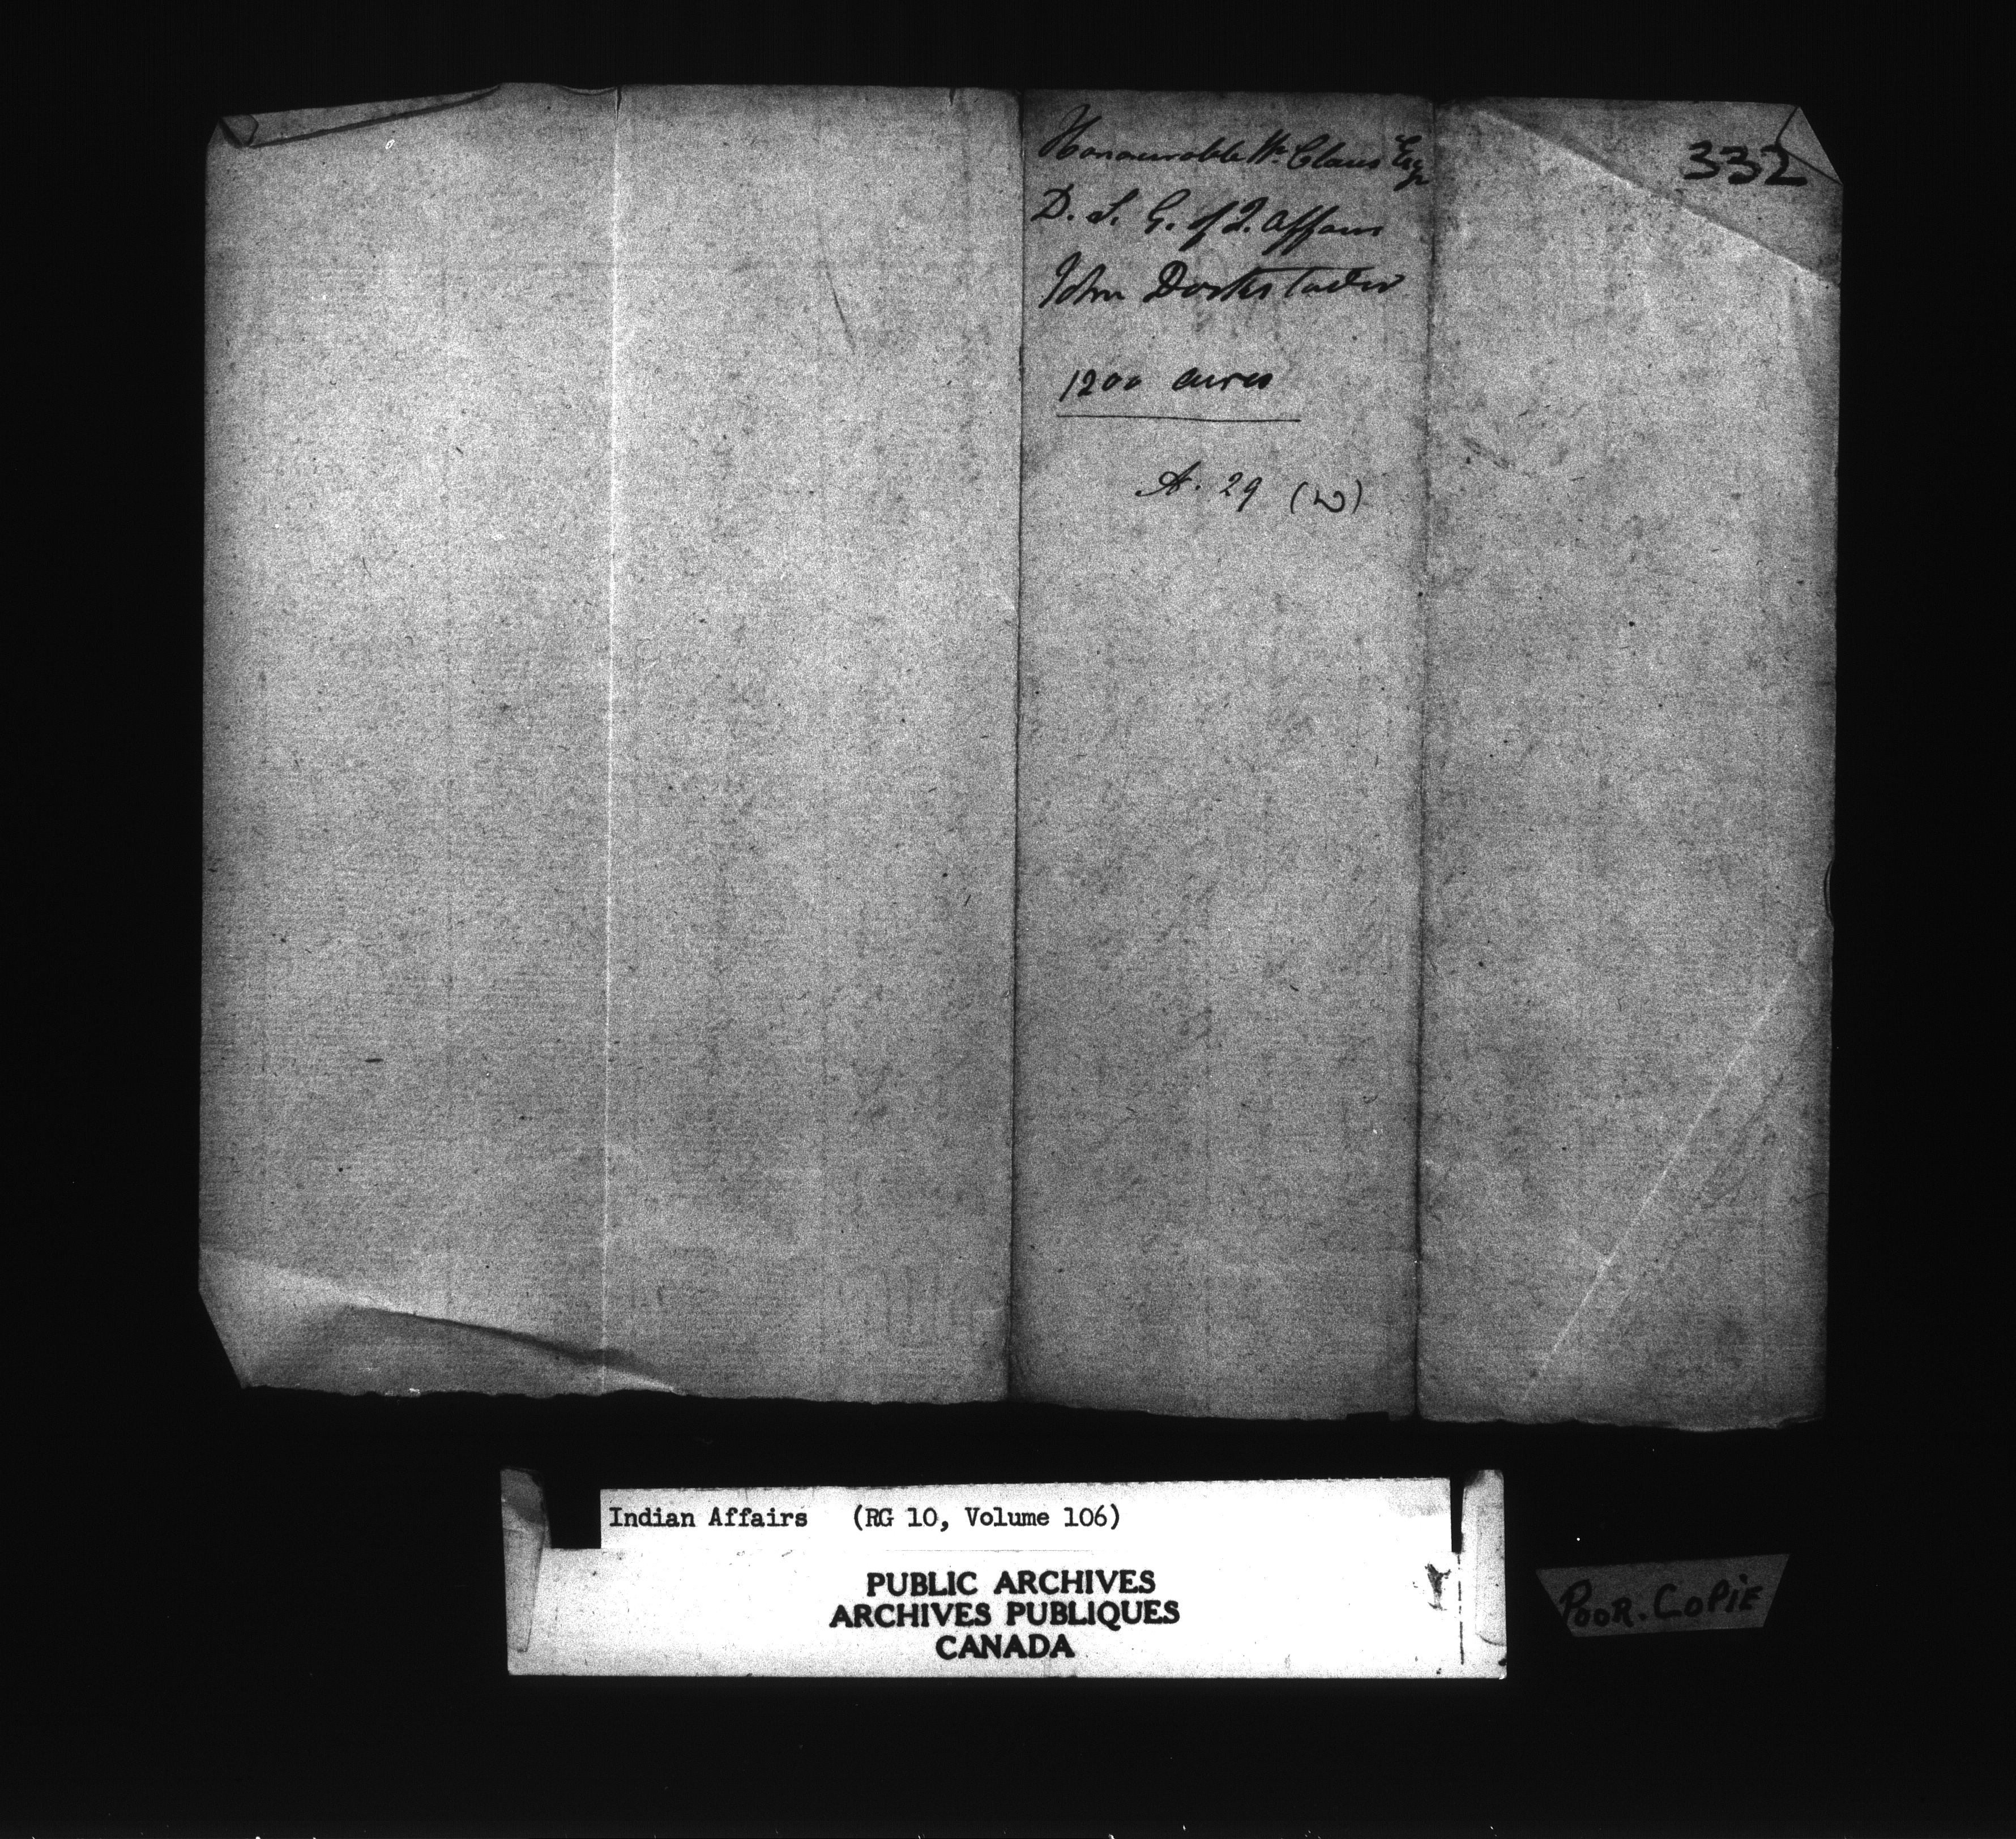 332
Honourable Wm Claus Esq
D. S. G. of I. Affairs
John Dockstader
1200 acres
A. 29 (W)
Indian Affairs (RG 10, Volume 106)
PUBLIC ARCHIVES
ARCHIVES PUBLIQUES
CANADA
POOR. COPIE